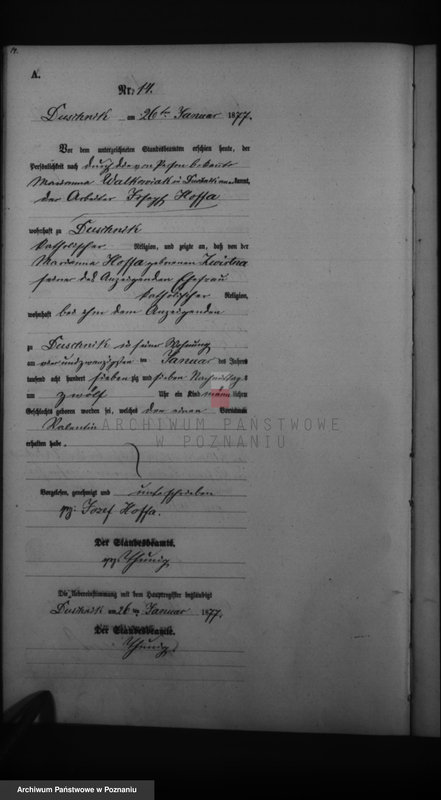 14.
A.
Nr. 14.
Duschnik am 26ten Januar 1877.
Vor dem unterzeichneten Standesbeamten erschien heute, der
Persönlichkeit nach durch die von Person bekannte
Marianna Walkowiak in kannt,
der Arbeiter Joseph Hoffa
wohnhaft zu Duschnik
katholischer Religion, und zeigte an, daß von der
Marianna Hoffa geborenen
seiner des Anzeigenden Ehefrau
katholischer Religion,
wohnhaft bei ihm dem Anzeigenden
zu Duschnik in seiner Wohnung
am vier und zwanzigsten ten Januar des Jahres
tausend acht hundert siebenzig und sieben Nachmittags
um zwölf Uhr ein Kind männlichen
Geschlechts geboren worden sei, welches den einen Vornamen
Valentin
erhalten habe.
Vorgelesen, genehmigt und unterschrieben
gez. Jozef Hoffa.
Der Standesbeamte.
gez.
Die Uebereinstimmung mit dem Hauptregister beglaubigt
Duschnik am 26ten Januar 1877.
Der Standesbeamte.
ARCHIWUM PAŃSTWOWE
W POZNANIU
Archiwum Państwowe w Poznaniu